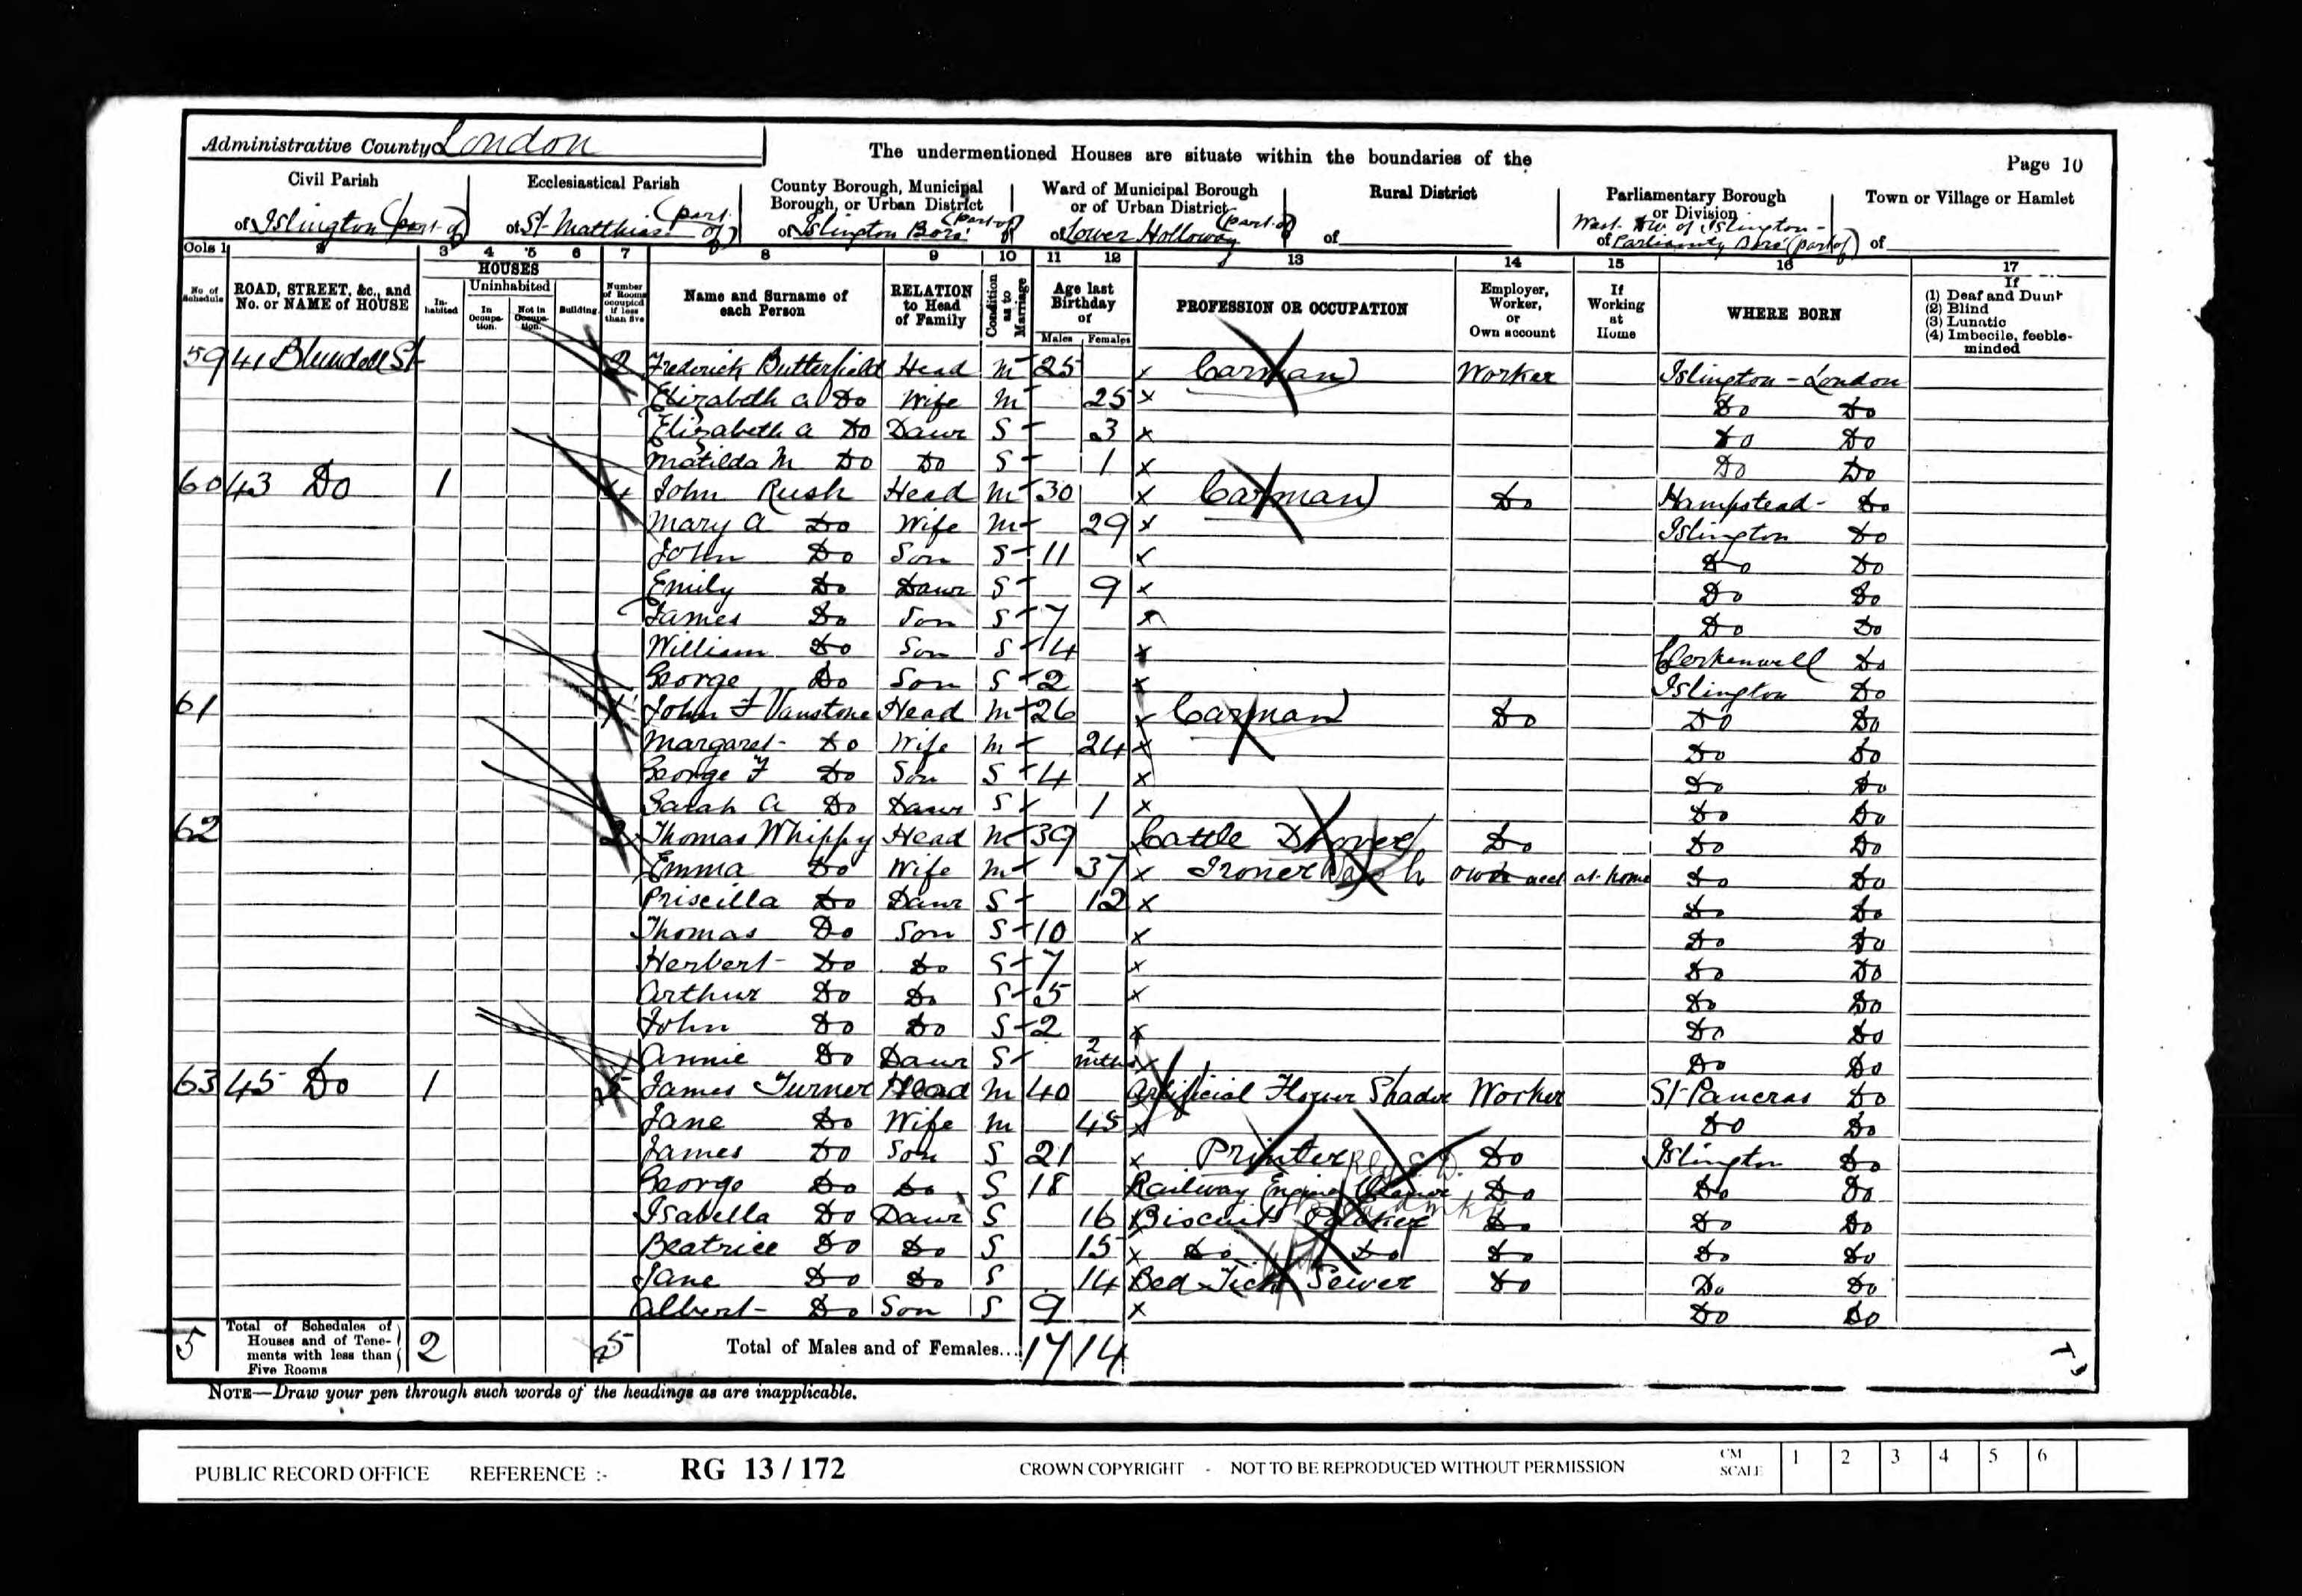 Administrative County London
The undermentioned Houses are situate within the boundaries of the
Page 10
Civil Parish
of Islington (part of)
Ecclesiastical Parish
of St Matthias (part of)
County Borough, Municipal Borough, or Urban District
of Islington Boro' (part of)
Ward of Municipal Borough or of Urban District
of Lower Holloway (part of)
Rural District
of
Parliamentary Borough or Division
West Div. of Islington
of Parliamenty Boro (part of)
Town or Village or Hamlet
of
Cols 1 2 3 4 5 6 7 8 9 10 11 12 13 14 15 16 17
No of Schedule
ROAD, STREET, &c., and No. or NAME of HOUSE
HOUSES
Inhabited
Uninhabited
In Occupation.
Not in Occupation.
Building.
Number of Rooms occupied if less than five
Name and Surname of each Person
RELATION to Head of Family
Condition as to Marriage
Age last Birthday of
Males Females
PROFESSION OR OCCUPATION
Employer, Worker, or Own account
If Working at Home
WHERE BORN
If
(1) Deaf and Dumb
(2) Blind
(3) Lunatic
(4) Imbecile, feeble-minded
59 41 Blundell St 2 Frederick Butterfield Head M 25 x Carman Worker Islington - London
Elizabeth A Do Wife M 25 x Do Do
Elizabeth A Do Daur S 3 x Do Do
Matilda M Do Do S 1 x Do Do
60 43 Do 1 4 John Rush Head M 30 x Carman Do Hampstead - Do
Mary A Do Wife M 29 x Islington Do
John Do Son S 11 x Do Do
Emily Do Daur S 9 x Do Do
James Do Son S 7 x Do Do
William Do Son S 4 x Clerkenwell Do
George Do Son S 2 x Islington Do
61 1 John F Vanstone Head M 26 x Carman Do Do Do
Margaret Do Wife M 24 x Do Do
George F Do Son S 4 x Do Do
Sarah A Do Daur S 1 x Do Do
62 2 Thomas Whippy Head M 39 Cattle Drover Do Do Do
Emma Do Wife M 37 x Ironer Wash Own acct at home Do Do
Priscilla Do Daur S 12 x Do Do
Thomas Do Son S 10 x Do Do
Herbert Do Do S 7 x Do Do
Arthur Do Do S 5 x Do Do
John Do Do S 2 x Do Do
Annie Do Daur S 2 mths x Do Do
63 45 Do 1 James Turner Head M 40 Artificial Flower Shader Worker St Pancras Do
Jane Do Wife M 45 x Do Do
James Do Son S 21 x Printer Do Islington Do
George Do Do S 18 Railway Engine Cleaner Do Do Do
Isabella Do Daur S 16 Biscuit Packer Do Do Do
Beatrice Do Do S 15 x Do Do Do Do Do
Jane Do Do S 14 Bed Tick Sewer Do Do Do
Albert Do Son S 9 x Do Do
5 Total of Schedules of Houses and of Tenements with less than Five Rooms 2 Total of Males and of Females... 17 14
NOTE—Draw your pen through such words of the headings as are inapplicable.
PUBLIC RECORD OFFICE REFERENCE :- RG 13 / 172 CROWN COPYRIGHT - NOT TO BE REPRODUCED WITHOUT PERMISSION CM SCALE 1 2 3 4 5 6